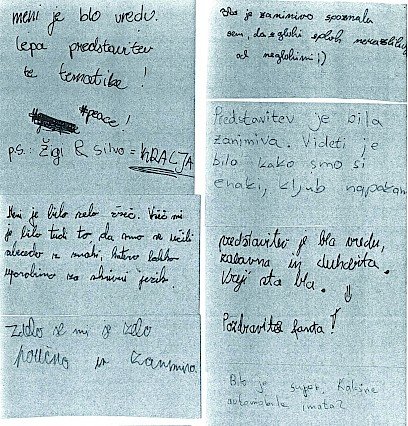 meni je blo vredu.
lepa predstavitev
te tematike!
#peace!
ps.: Žigi & Silvo = KRALJA
Meni je bilo zelo všeč. Všeč mi
je bilo tudi to da smo se učili
abecedo z znaki, katero lahko
uporabimo za skrivni jezik.
Zdelo se mi je zelo
poučno in zanimivo.
je zanimivo spoznala
sem, da se gluhi sploh ne razlikujejo
od neglohih ;)
Predstavitev je bila
zanimiva. Videti je
bilo kako smo si
enaki, kljub napakam
predstavitev je bla vredu,
zabavna in duhovita.
Kralji sta bla.
Pozdravite fanta!
Bilo je super. Kakšne
automobile imata?